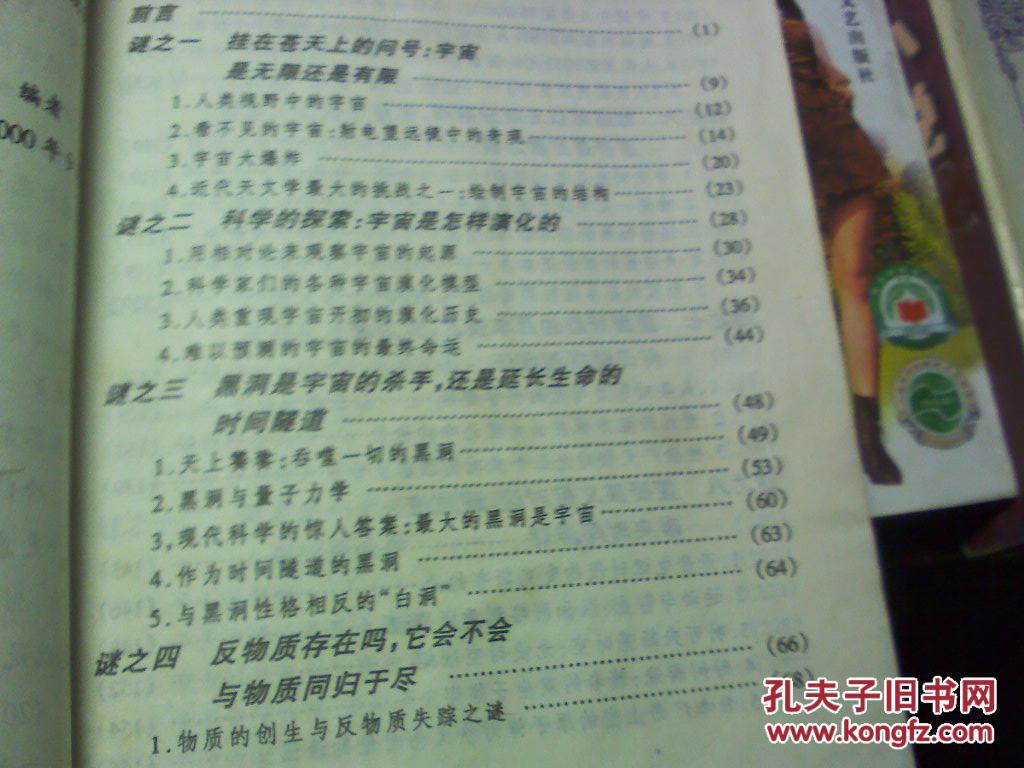 前言 (1)
谜之一 挂在苍天上的问号:宇宙
是无限还是有限 (9)
1.人类视野中的宇宙 (12)
2.看不见的宇宙:射电望远镜中的奇观 (14)
3.宇宙大爆炸 (20)
4.近代天文学最大的挑战之一:绘制宇宙的结构 (23)
谜之二 科学的探索:宇宙是怎样演化的 (28)
1.用相对论来观察宇宙的起源 (30)
2.科学家们的各种宇宙演化模型 (34)
3.人类重现宇宙开初的演化历史 (36)
4.难以预测的宇宙的最终命运 (44)
谜之三 黑洞是宇宙的杀手,还是延长生命的
时间隧道 (48)
1.天上饕餮:吞噬一切的黑洞 (49)
2.黑洞与量子力学 (53)
3,现代科学的惊人答案:最大的黑洞是宇宙 (60)
4.作为时间隧道的黑洞 (63)
5.与黑洞性格相反的“白洞” (64)
谜之四 反物质存在吗,它会不会
与物质同归于尽 (66)
1.物质的创生与反物质失踪之谜
编者
000年
文艺出版社
孔夫子旧书网
www.kongfz.com